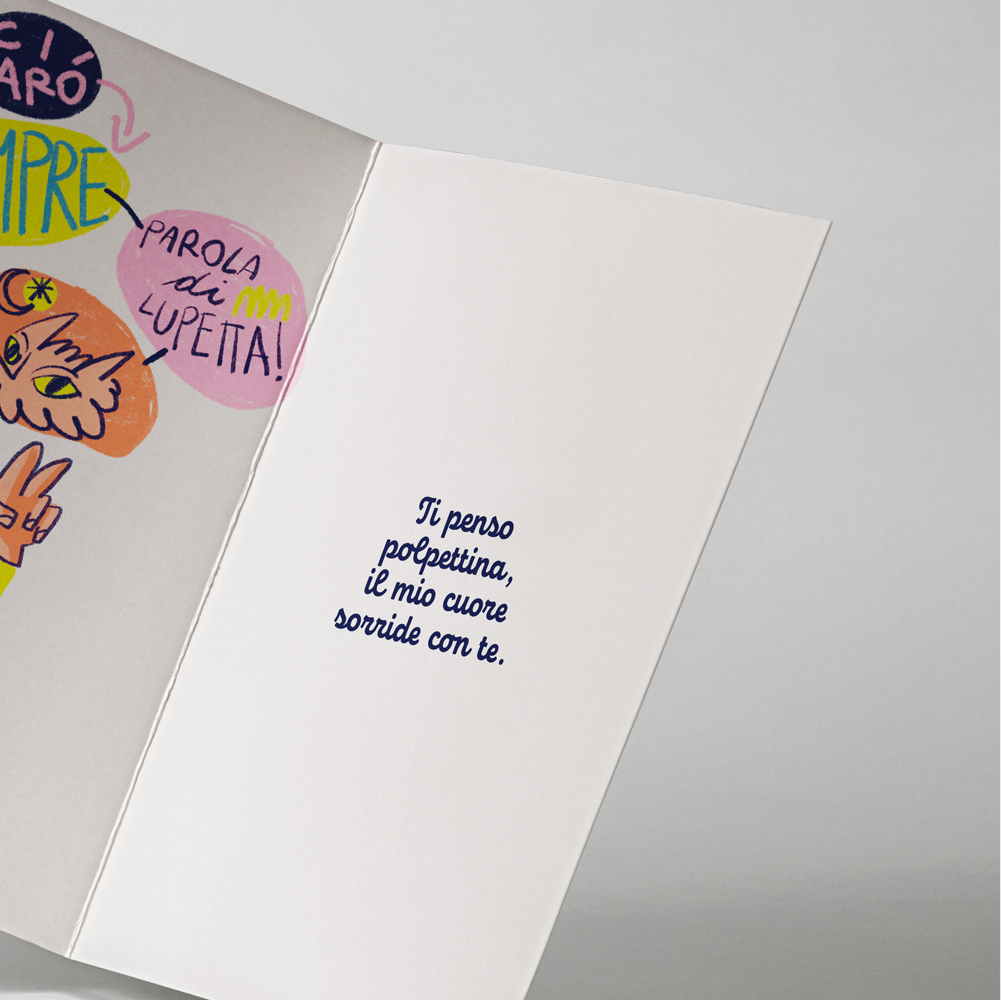 CI
ARÓ
MPRE
PAROLA
di
LUPETTA!
Ti penso
polpettina,
il mio cuore
sorride con te.